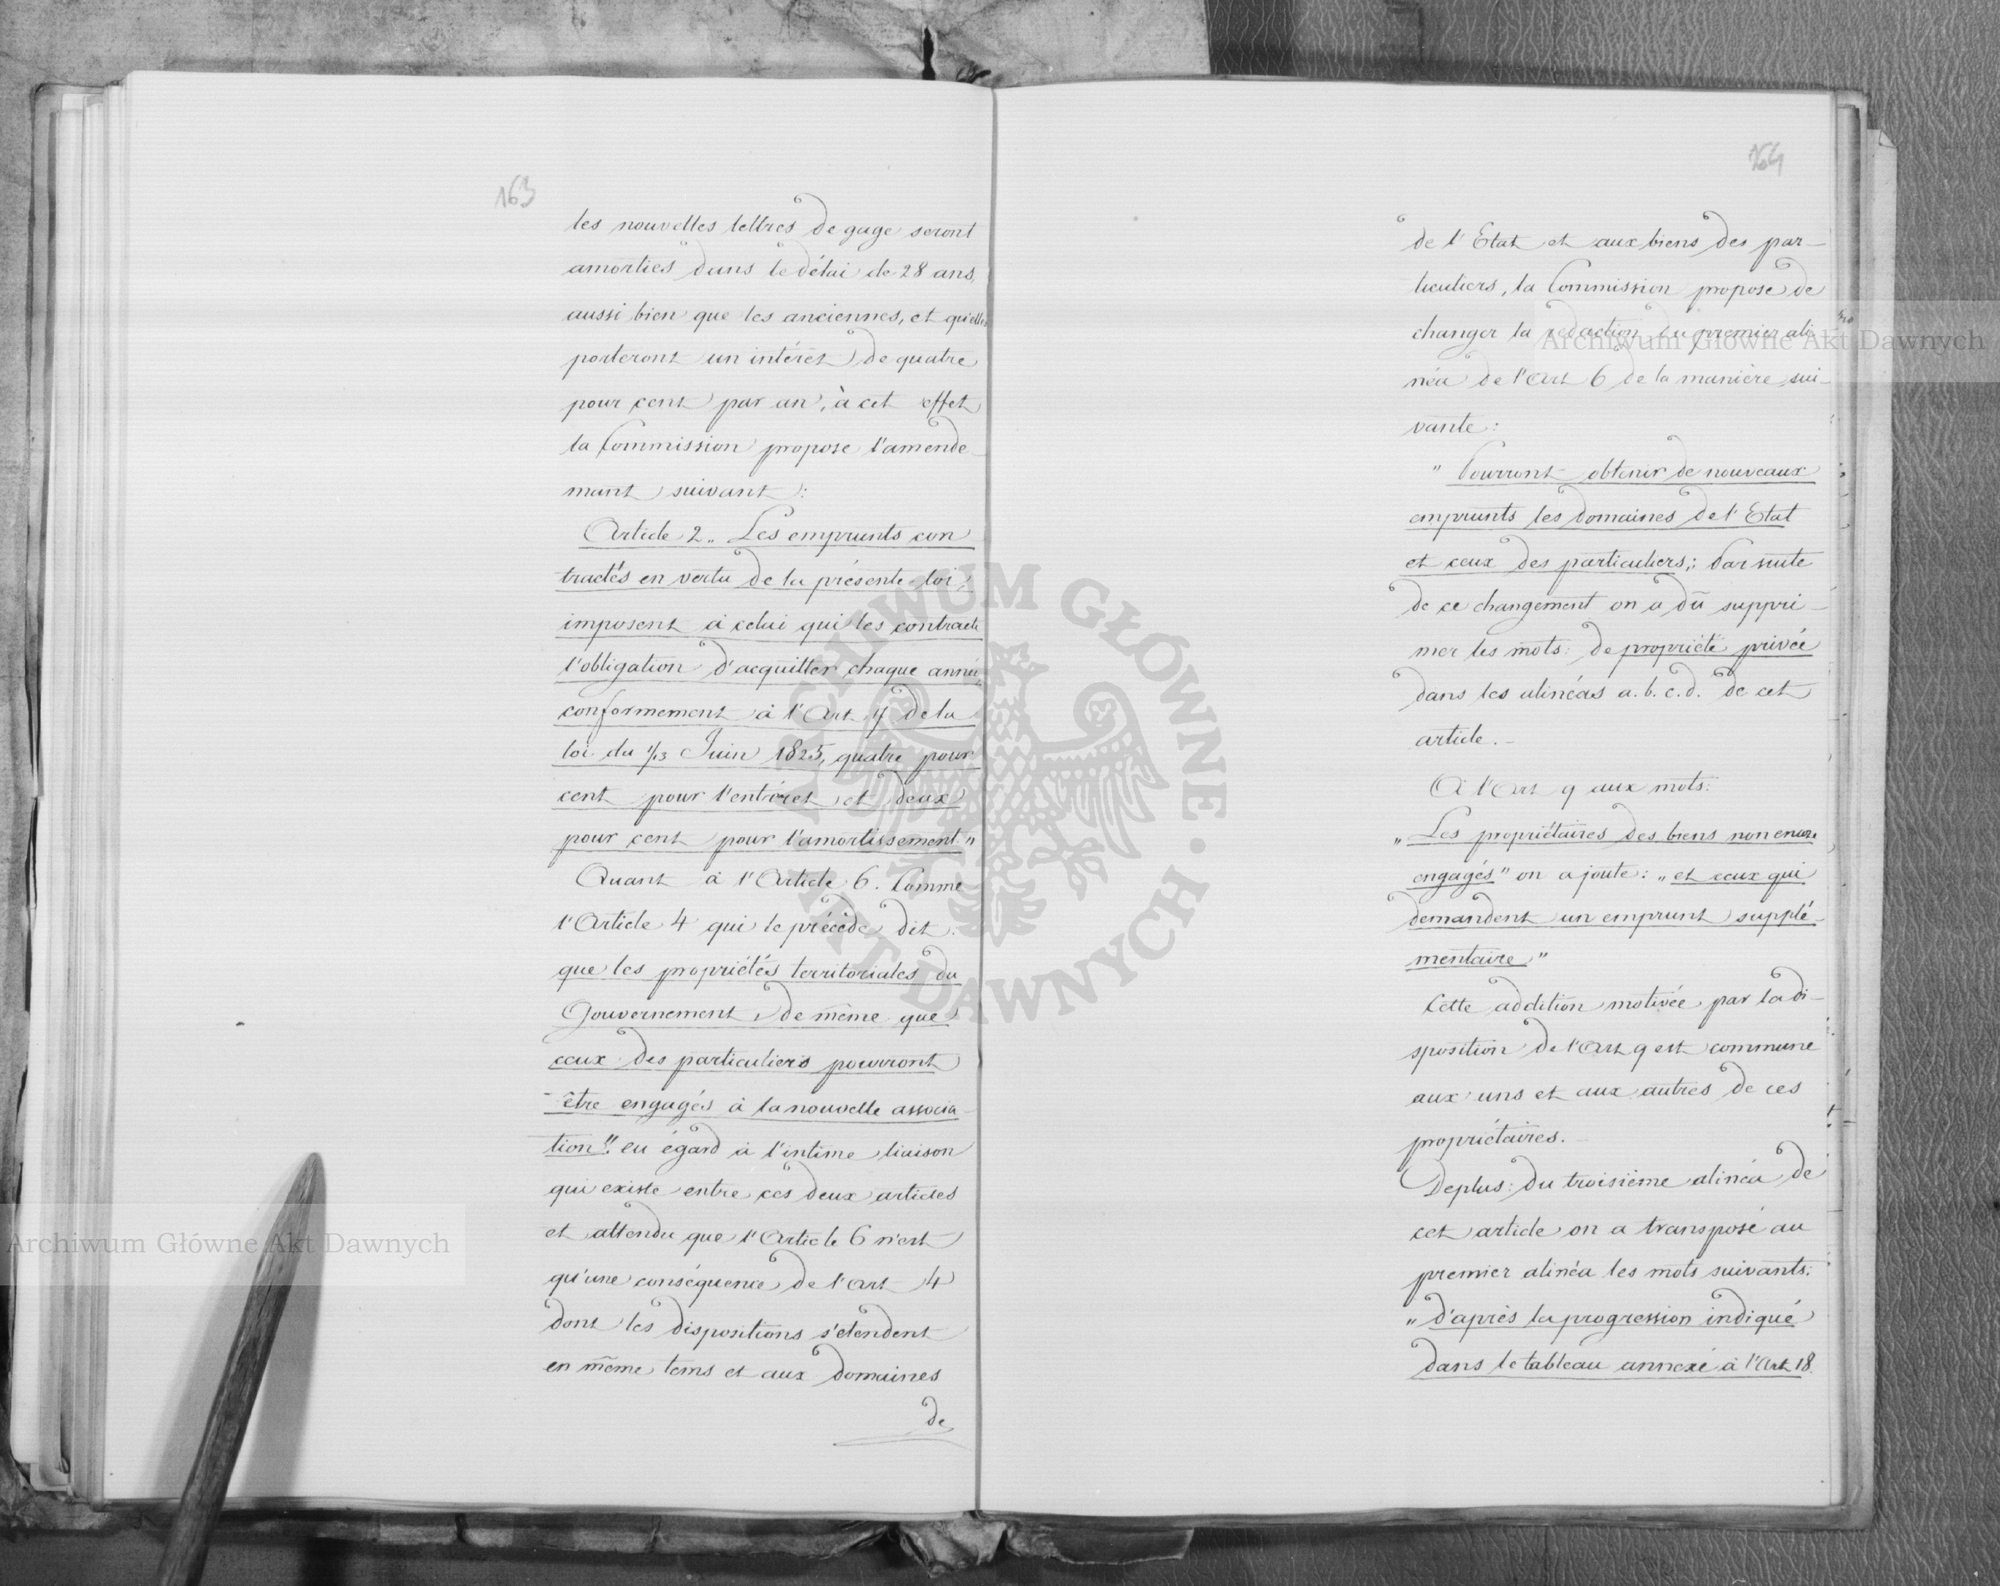 163
les nouvelles lettres de gage seront
amorties dans le délai de 28 ans,
aussi bien que les anciennes, et qu'elles
porteront un intérêt de quatre
pour cent par an, à cet effet
la Commission propose l'amende-
mant suivant:
Article 2 „ Les emprunts con
tractés en vertu de la présente loi,
imposent à celui qui les contracte
l'obligation d'acquitter chaque année
conformement à l'Art. 7 de la
loi du 1/13 Juin 1825, quatre pour
cent pour l'entéret et deux
pour cent pour l'amortissement."
Quant à l'Article 6. Comme
l'Article 4 qui le précède dit:
que les propriétés territoriales du
Gouvernement, de même que
ceux des particuliers pourront
être engagés à la nouvelle associa-
tion". eu égard à l'intime liaison
qui existe entre ces deux articles
et attendu que l'Article 6 n'est
qu'une conséquence de l'Art 4
dont les dispositions s'étendent
en même tems et aux domaines
de
164
de l'Etat et aux biens des par-
ticuliers, la Commission propose de
changer la rédaction du premier ali-
néa de l'Art 6 de la manière sui-
vante:
" Pourront obtenir de nouveaux
emprunts les domaines de l'Etat
et ceux des particuliers; Par suite
de ce changement on a dû suppri-
mer les mots: de propriété privée
dans les alinéas a. b. c. d. de cet
article. -
A l'Art 9 aux mots:
„ Les propriétaires des biens non encore
engagés" on a joute: „ et ceux qui
demandent un emprunt supplé-
mentaire "
Cette addition motivée par la di-
sposition de l'Art 9 est commune
aux uns et aux autres de ces
propriétaires. -
Deplus: du troisième alinéa de
cet article on a transposé au
premier alinéa les mots suivants:
„ d'après la progression indiqué
dans le tableau annexé à l'Art 18.
Archiwum Główne Akt Dawnych
Archiwum Główne Akt Dawnych
ARCHIWUM GŁÓWNE · AKT DAWNYCH ·